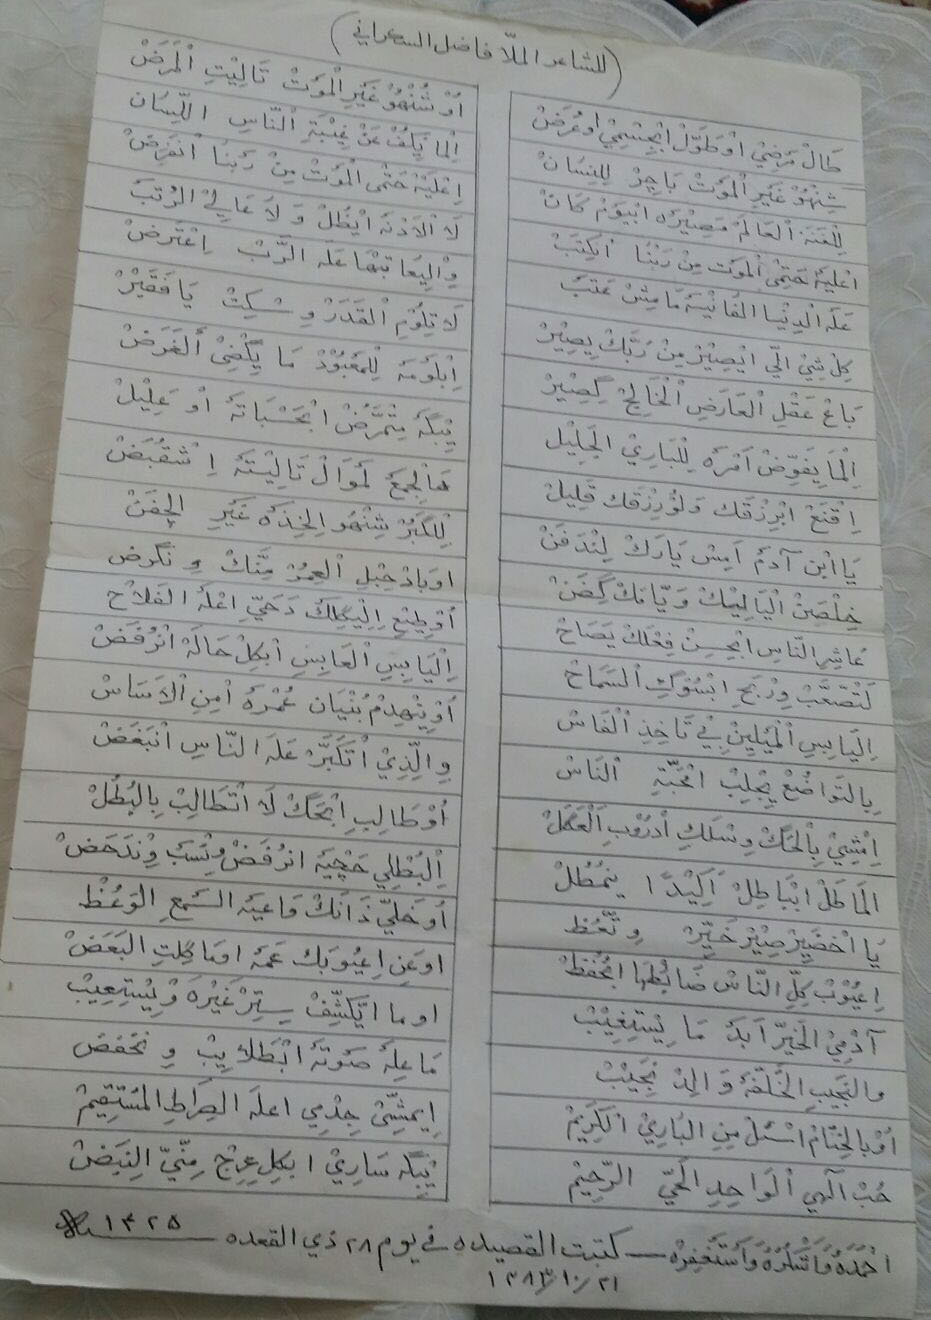 (للشاعر الملّا فاضل السكراني)
طَالْ مَرَضِيْ اوْطَوَّلْ ابْجِسْمِيْ اوْعُرَضْ
اوْ شُنْهُوْ غَيْرِ الْمَوَتْ تَالِيْتِ الْمَرَضْ
شِنْهُوْ غَيْرِ الْمَوَتْ بَاچِرْ لِلِنْسَانْ
اِلْمَا يَلِفْ عَنْ غِيْبَةِ النَّاسِ اللِّسَان
لِلْفَنَهَ الْعَالَمْ مَصِيْرَه ابْيَوَمْ كَانْ
اِعْلَيَهْ حَتْمِ الْمَوَتْ مِنْ رَبْنَا انْفَرَضْ
اعْلَيَهْ حَتْمِ الْمَوَت مِنْ رَبْنَا انْكِتَبْ
لَا الْاَدْنَهَ ايْظَلْ وَلَا عَالِيْ الرُّتَبْ
عَلَه الدِنْيَا الْفَانْيَهَ مَامِشْ عَتَبْ
وِالْيِعَاتِبْهَا عَلَه الرَّبْ اِعْتَرَضْ
كِلْ شِيْ الّي ايْصِيْرْ مِنْ رَبَّكْ يِصِيْرْ
لَا تِلُوْمِ الْقَدَرْ وِ سْكِتْ يَا فَقَيْرْ
بَاعْ عَقْلِ الْعَارَضِ الْخَالِجْ گِصِيْرْ
اِبْلَوْمَهَ لِلْمَعْبُوْدْ مَا يِگْضِيْ الْغَرَضْ
اِلْمَا يفَوِّضْ اَمْرَه لِلْبَارِيْ الْجَلِيْلْ
يِبْگَهَ مِتْمَرَّضْ ابْحَسْبَاتَهَ اوْ عَلِيْلْ
اِقْنَعْ ابْرِزْقَكْ وَلَوْ رِزْقَك قَلِيلْ
هَالْجِمَعْ لَمْوَالْ تَالِيْتَهَ اِشْقُبَضْ
يَا ابْن آدَمْ اَمِسْ يَارَكْ لِنْدَفَنْ
لِلْگَبَرْ شِنْهُو الِخِذَه غَيْرِ الچِفَنْ
خِلْصَنْ الْيَالِيْك وَيّامَكْ گِضَنْ
اوْبَادْ حِبْلِ الْعِمِرْ مِنَّكْ وِ نْگَرَضْ
عَاشِرِ النَّاسْ ابْحِسِنْ فِعْلَكْ يَصَاحْ
اوْطِيْعِ الِيْگِلَّكْ دَحَيِّ اعْلَه الْفَلَاحْ
لَتْصَعَّبْ وِرْبَحِ ابْسُوْگِ السَّمَاحْ
اِلْيَابِسِ الْعَابِسِ ابْكِلْ حَالَهَ انْرُفَضْ
اِلْيَابِسِ الْمَيْلِيْنِ يْ تَاخِذِ الْفَاسْ
اوْيِنْهِدِمْ بُنْيَان عُمْرَه اْمِنِ الْاَسَاسْ
بِالتَوَاضُعْ يِجْلِبْ الْمَحَبَّة النَاسْ
وِالَّذِيْ اتْكَبَّرْ عَلَه النَّاسِ انْبَغَضْ
اِمْشِيْ بِالْحَگْ وِسْلَكِ ادْرُوْبِ الْعَگَلْ
اوْطَالِبِ ابْحَگَّكْ لَا اتْطَالِبْ بِالْبُطَلْ
الْمَاطَلْ ابْبَاطِلْ اَكِيْدًا يِنمُطَلْ
اِلْبُطْلِي حَچْيَهَ انْرُفَضْ وِنْسَبْ وِنْدَحَضْ
يَا اخْضَيِّرْ صِيْرْ خَيِّرْ وِتَّعُظْ
اوْخَلِّي ذَانَكْ وَاعْيَه السَّمَعِ الْوَعُظْ
اِعْيُوْبْ كِلِّ النَّاسْ ضَابُطْهَا ابْحُفَظْ
اوعَن اِعْيُوبَكْ عَمَهْ اوْمَا گِلْتِ الْبَعَضْ
آدْمِيْ الْخَيِّرْ اَبَدْ مَا يِسْتِغِيْبْ
اومَا ايْكَشِّفْ سِتِرْ غَيْرَه وْيِسْتِعِيْبْ
وِالنَجِيبِ الْخَلَّفَهَ وَالِدْ نِجِيْبْ
مَاعِلَهَ صَوْتَهَ ابْطَلَايِبْ وِ نْخَفَضْ
اوْبِالْخِتَامْ اسْئَلْ مِنِ الْبَارِيْ الْكَرِيْمْ
اِيمَشِّيْ جِدْمِي اعْلَه الصِرَاطِ الْمُسْتَقِيْمْ
حُبْ آلْهِي الْوَاحِدِ الْحَيِّ الرَّحِيْمْ
يِبْگَه سَارِيْ ابْكِلِ عِرِجْ مِنِّيْ النِبَضْ
اَحْمَدُهُ وَاَشْكُرُهُ وَاَسْتَغْفِرُهْ — كتبت القصيده في يوم ٢٨ ذي القعده ١٤٣٥